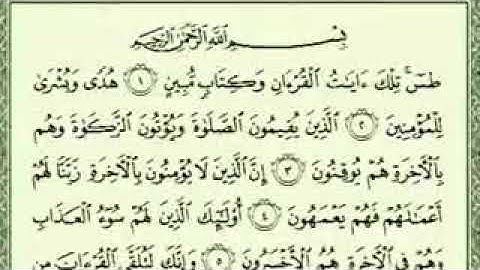 بِسْمِ اللَّهِ الرَّحْمَٰنِ الرَّحِيمِ
طسٓ ۚ تِلْكَ ءَايَٰتُ الْقُرْءَانِ وَكِتَابٍ مُّبِينٍ ١ هُدًى وَبُشْرَىٰ
لِلْمُؤْمِنِينَ ٢ الَّذِينَ يُقِيمُونَ الصَّلَوٰةَ وَيُؤْتُونَ الزَّكَوٰةَ وَهُم
بِالْءَاخِرَةِ هُمْ يُوقِنُونَ ٣ إِنَّ الَّذِينَ لَا يُؤْمِنُونَ بِالْءَاخِرَةِ زَيَّنَّا لَهُمْ
أَعْمَٰلَهُمْ فَهُمْ يَعْمَهُونَ ٤ أُوْلَٰٓئِكَ الَّذِينَ لَهُمْ سُوٓءُ الْعَذَابِ
وَهُمْ فِي الْءَاخِرَةِ هُمُ الْأَخْسَرُونَ ٥ وَإِنَّكَ لَتُلَقَّى الْقُرْءَانَ مِن